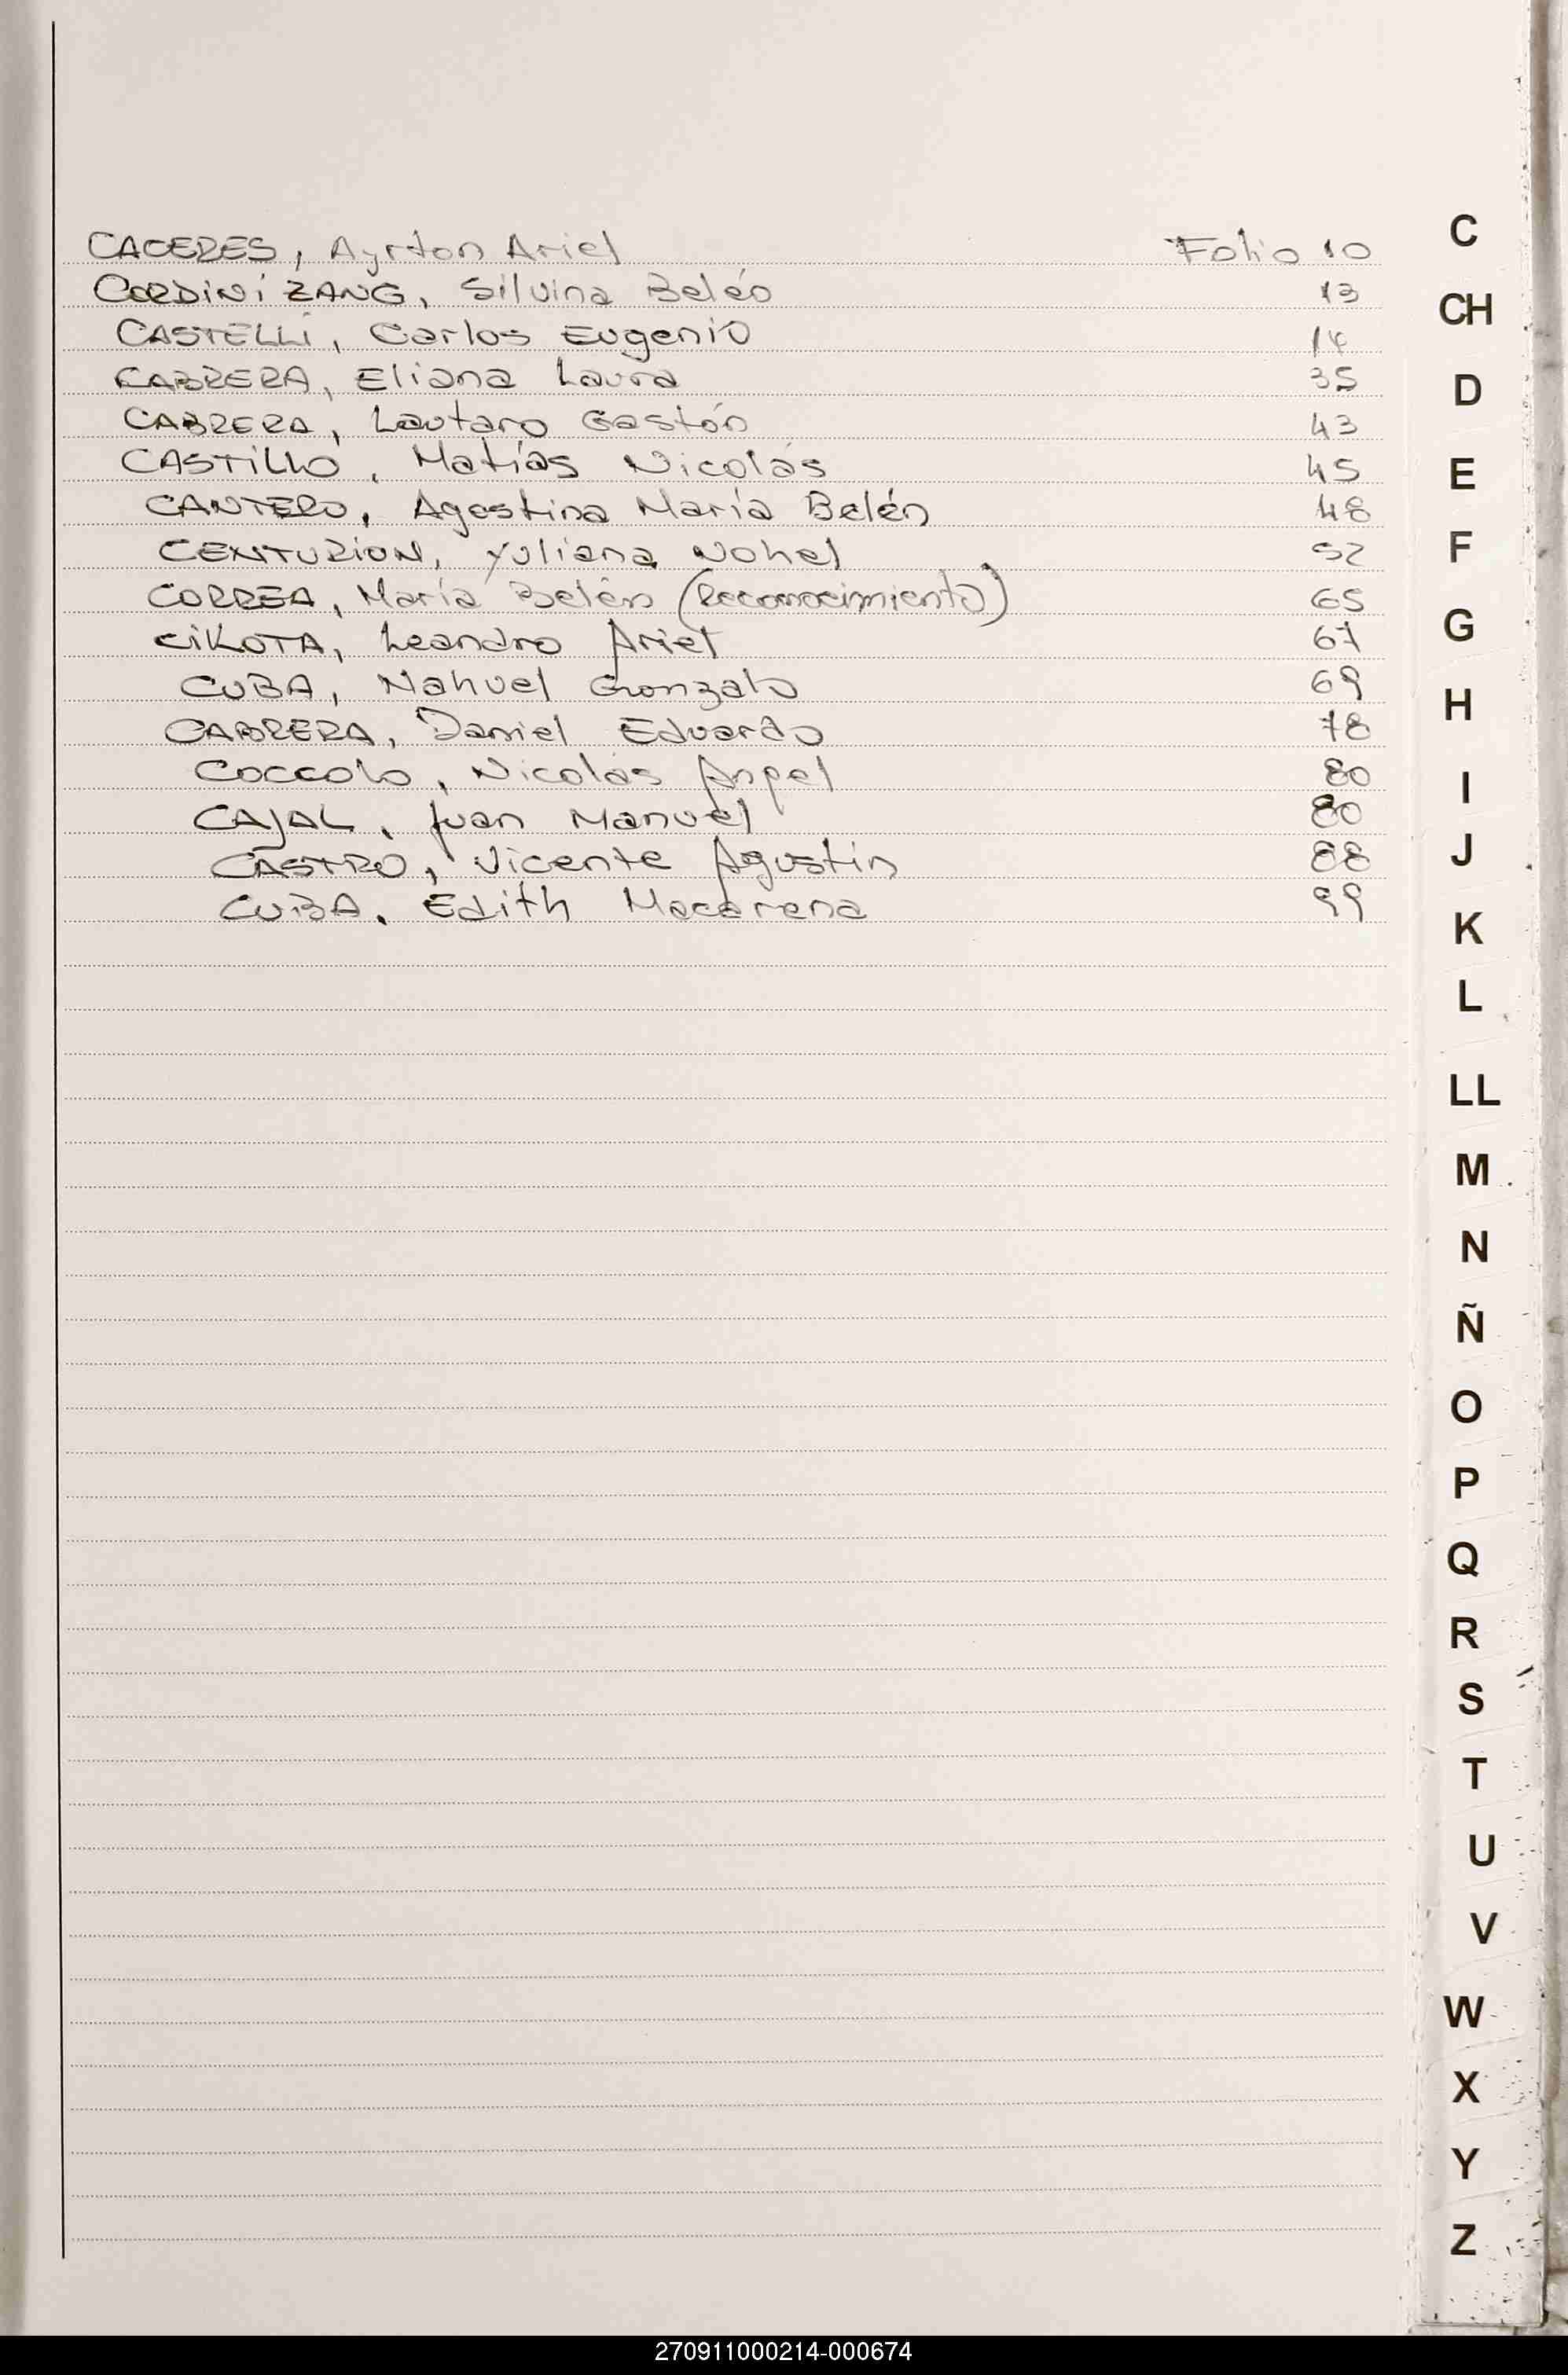 CACERES, Ayrton Ariel Folio 10
CORDINI ZANG, Silvina Belén 13
CASTELLI, Carlos Eugenio 14
CABRERA, Eliana Laura 35
CABRERA, Lautaro Gastón 43
CASTILLO, Matías Nicolás 45
CANTERO, Agostina María Belén 48
CENTURION, Yuliana Nohel 52
CORREA, María Belén (Reconocimiento) 65
CIKOTA, Leandro Ariel 67
CUBA, Nahuel Gonzalo 69
CABRERA, Daniel Eduardo 78
COCCOLO, Nicolás Angel 80
CAJAL, Juan Manuel 80
CASTRO, Vicente Agustín 88
CUBA, Edith Macarena 99
C
CH
D
E
F
G
H
I
J
K
L
LL
M
N
Ñ
O
P
Q
R
S
T
U
V
W
X
Y
Z
270911000214-000674